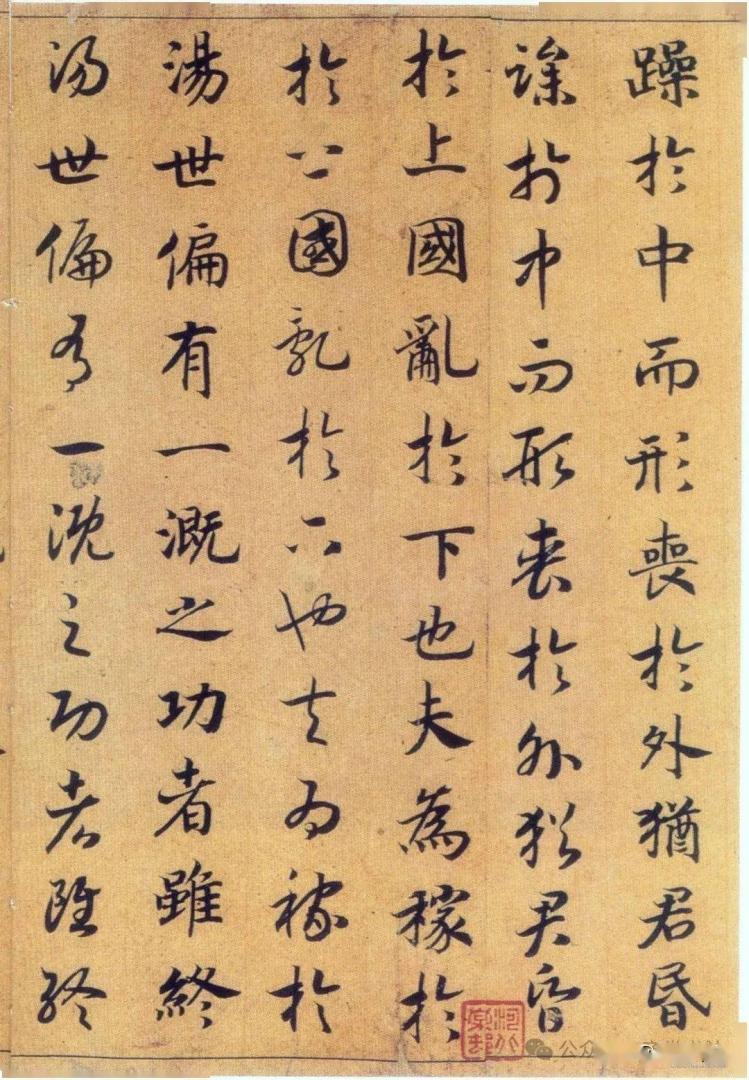 躁於中而形喪於外猶君昏
躁於中而形喪於外猶君昏
於上國亂於下也夫為稼於
於上國亂於下也夫為稼於
湯世偏有一溉之功者雖終
湯世偏有一溉之功者雖終
公众